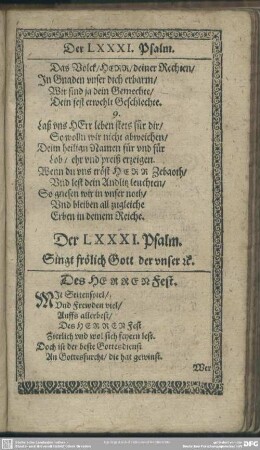 Der LXXXI. Psalm.
Das Volck/ HERR/ deiner Rechten/
In Gnaden vnser dich erbarm/
Wir sind ja dein Gemechte/
Dein fest erwehlt Geschlechte.
9.
Laß vns HErr leben stets für dir/
So wolln wir nicht abweichen/
Deim heilign Namen für vnd für
Lob/ ehr vnd preiß erzeigen.
Wenn du vns tröst HERR Zebaoth/
Vnd lest dein Andlitz leuchten/
So gnesen wir in vnser noth/
Vnd bleiben all zugleiche
Erben in deinem Reiche.
Der LXXXI. Psalm.
Singt frölich Gott der vnser ꝛc.
Des HERREN Fest.
MIt Seitenspiel/
Vnd Frewden viel/
Auffs allerbest/
Des HERREN Fest
Zierlich vnd wol sich feyern lest.
Doch ist der beste Gottesdienst
An Gottesfurcht/ die hat gewinst.
Wer
DFG